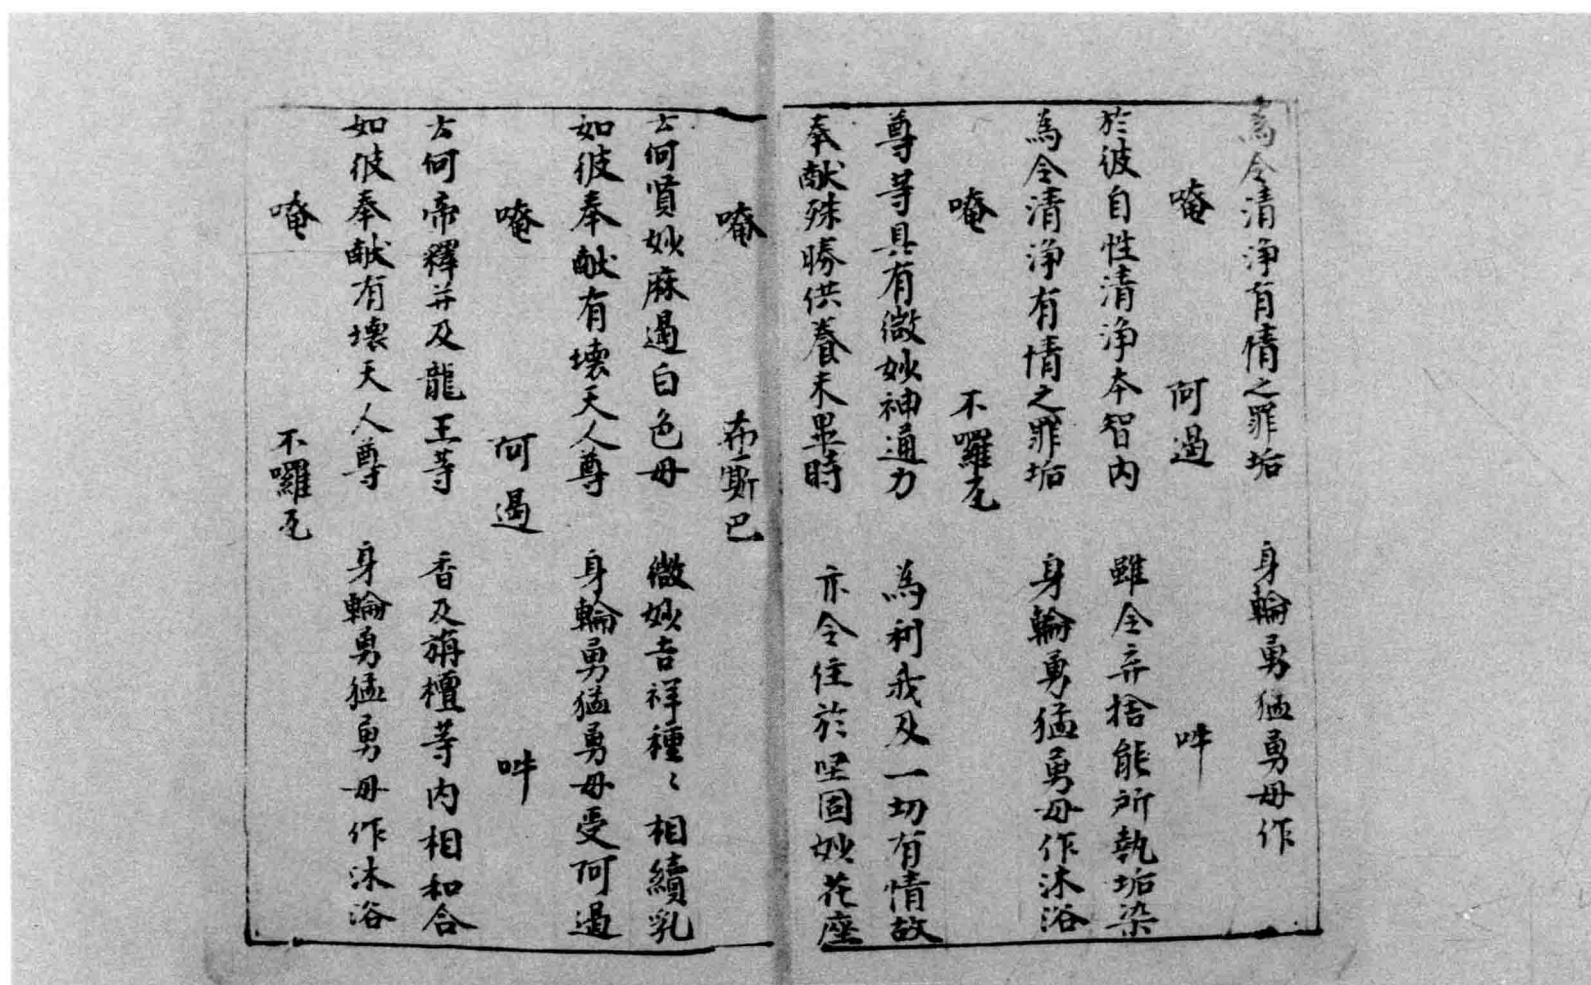 為令清淨有情之罪垢　身輪勇猛勇母作
唵　阿遏　吽
於彼自性清淨本智內　雖令弃捨能所執垢染
為令清淨有情之罪垢　身輪勇猛勇母作沐浴
唵　不囉乇
尊等具有微妙神通力　為利我及一切有情故
奉献殊勝供養未畢時　亦令住於堅固妙花座
唵　布斯巴
云何賢妙麻遏白色毋　微妙吉祥種〻相續乳
如彼奉献有壞天人尊　身輪勇猛勇母受阿遏
唵　阿遏　吽
云何帝釋并及龍王等　香及旃檀等內相和合
如彼奉献有壞天人尊　身輪勇猛勇母作沐浴
唵　不囉乇